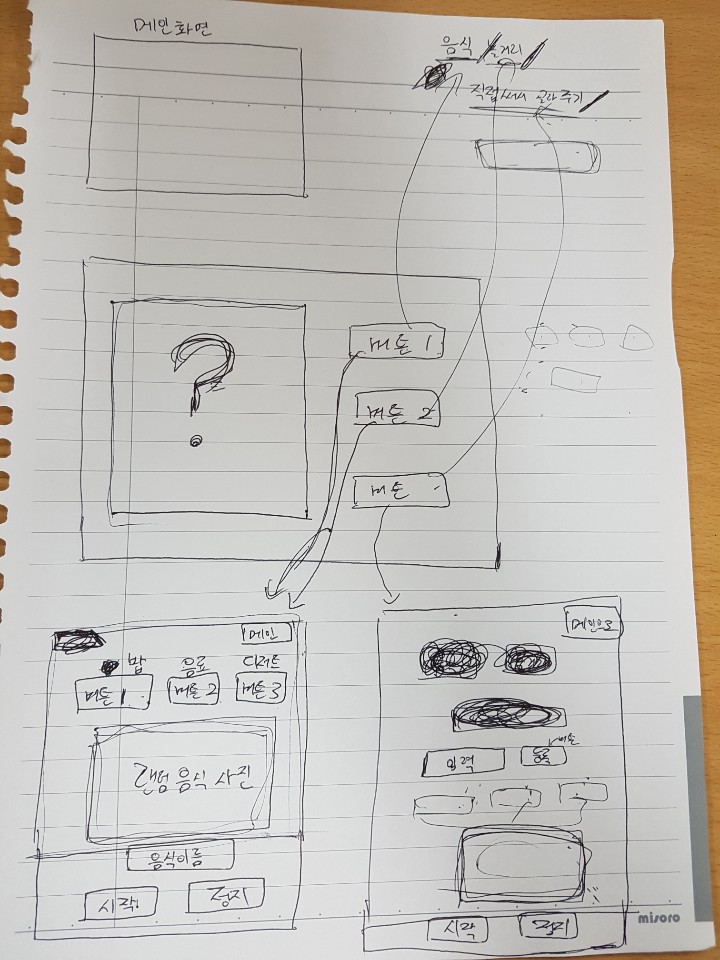 메인화면
음식 / 놀거리 /
직접 써서 골라주기 /
?
버튼 1
버튼 2
버튼
메인
밥 음료 디저트
버튼 1 버튼 2 버튼 3
랜덤 음식 사진
음식이름
시작! 정지
메인으로
버튼
입력
시작 정지
misoro